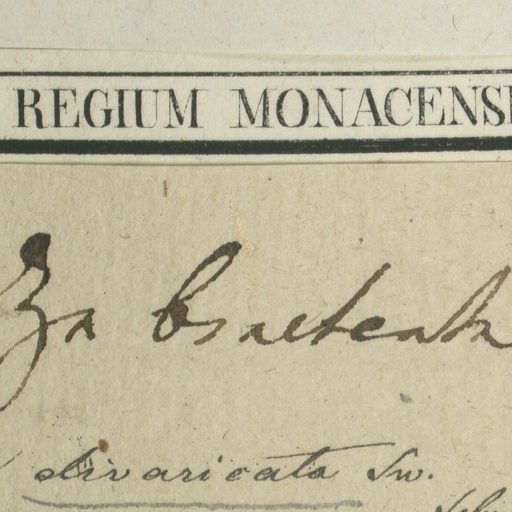 REGIUM MONACENS
bracteata
divaricata Sw.